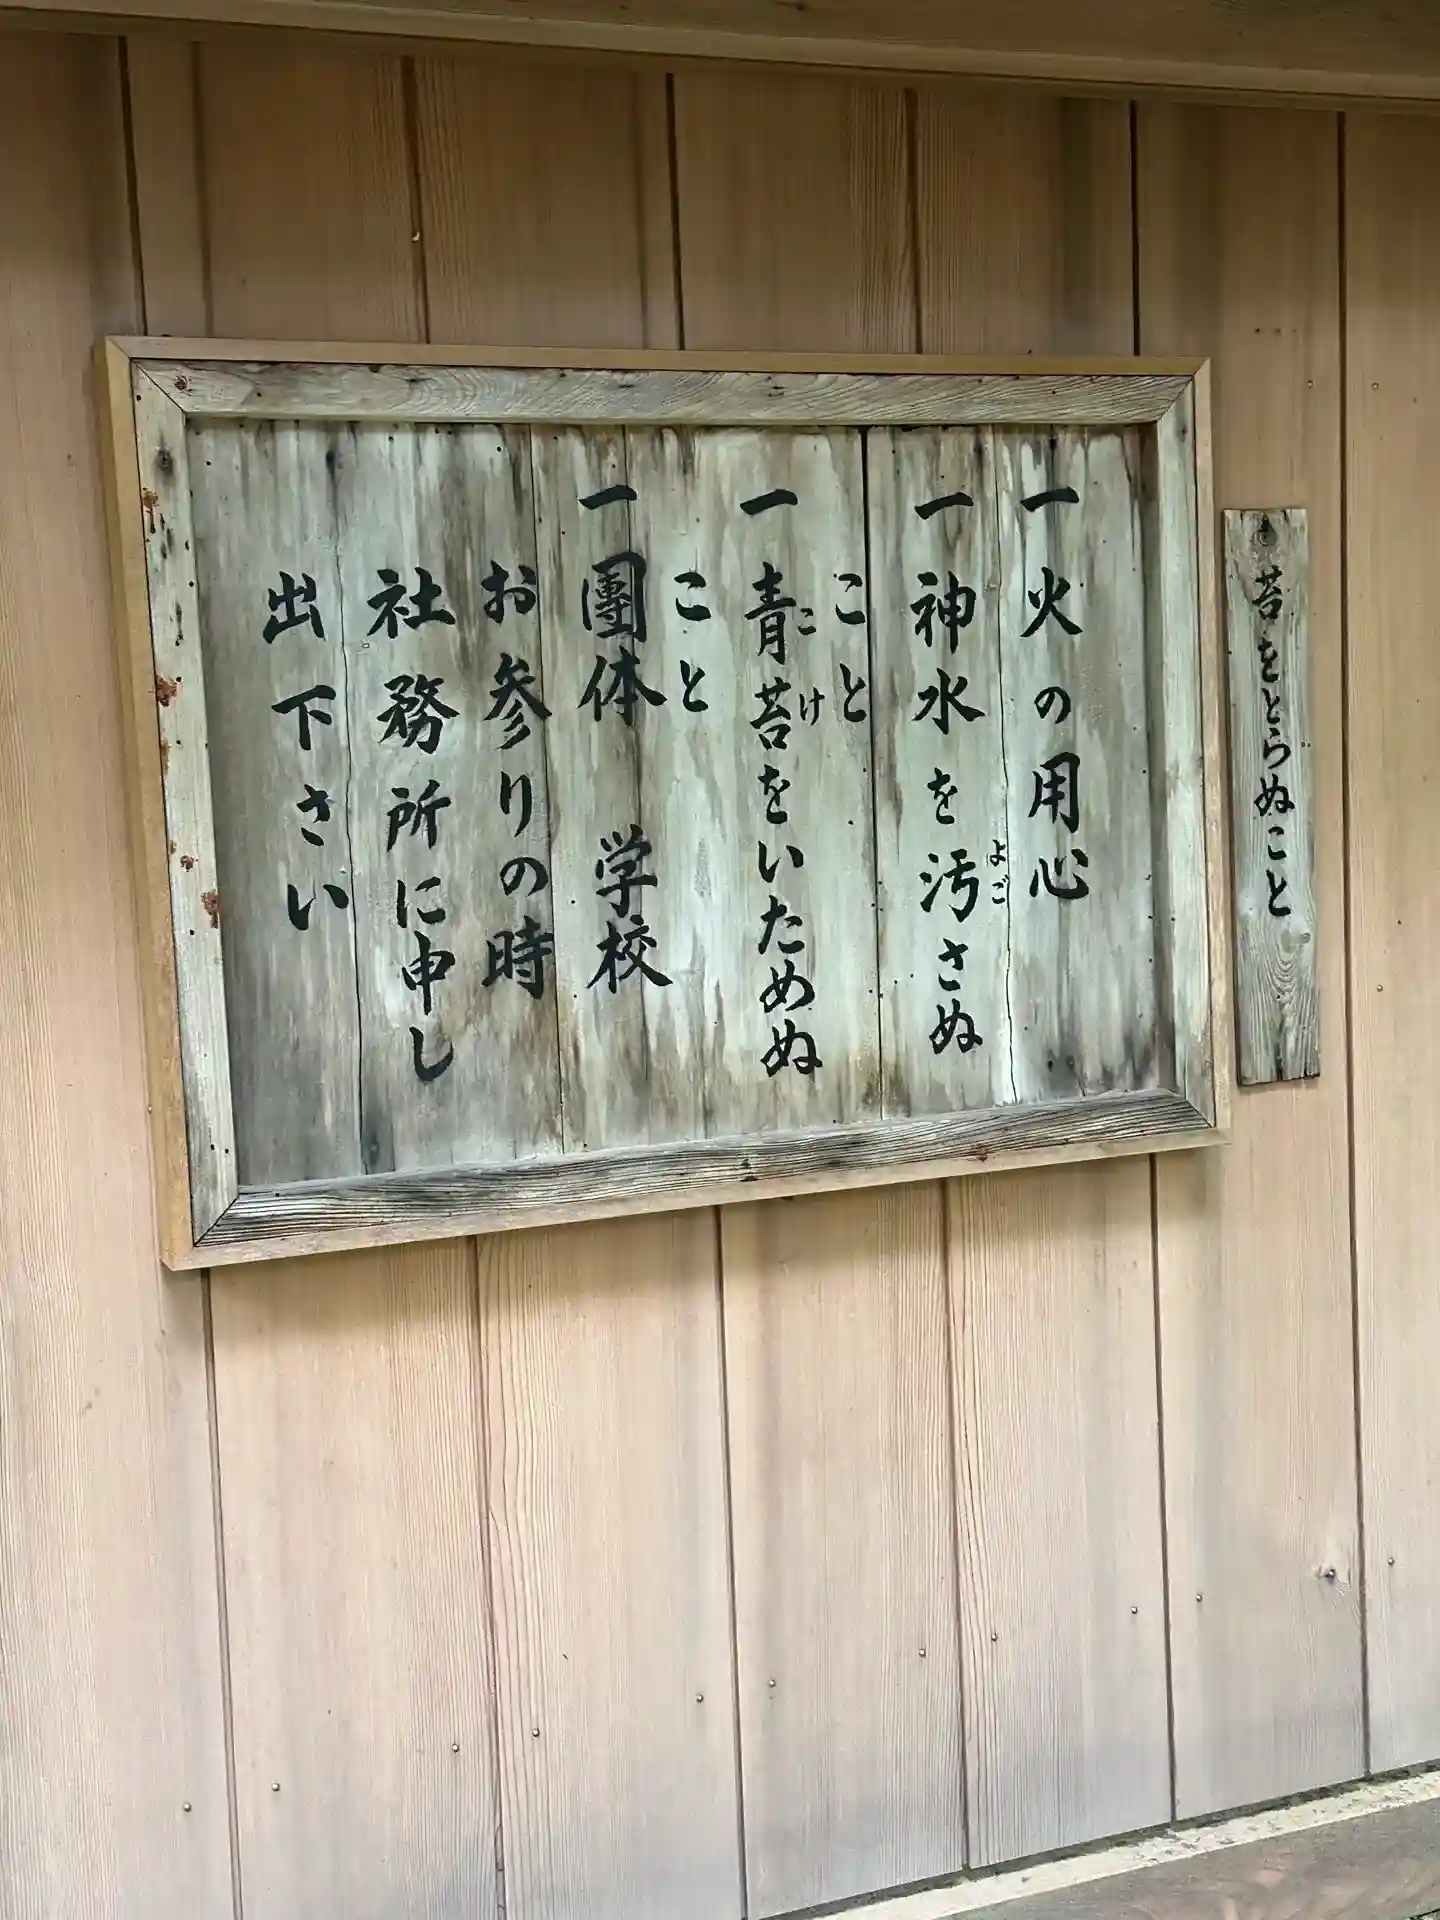 苔をとらぬこと
一火の用心
一神水を汚さぬ
よご
こと
一青苔をいためぬ
こけ
こと
一團体 学校
お参りの時
社務所に申し
出下さい